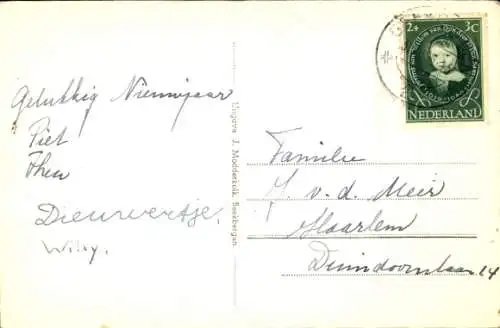 2+ 3C
NEDERLAND
Gelukkig Nieuwjaar
Piet
Dieuwertje.
Willy.
Uitgave J. Modderkolk, Beekbergen
Familie
v.d. Meir
Haarlem
Duindoornlaan 24